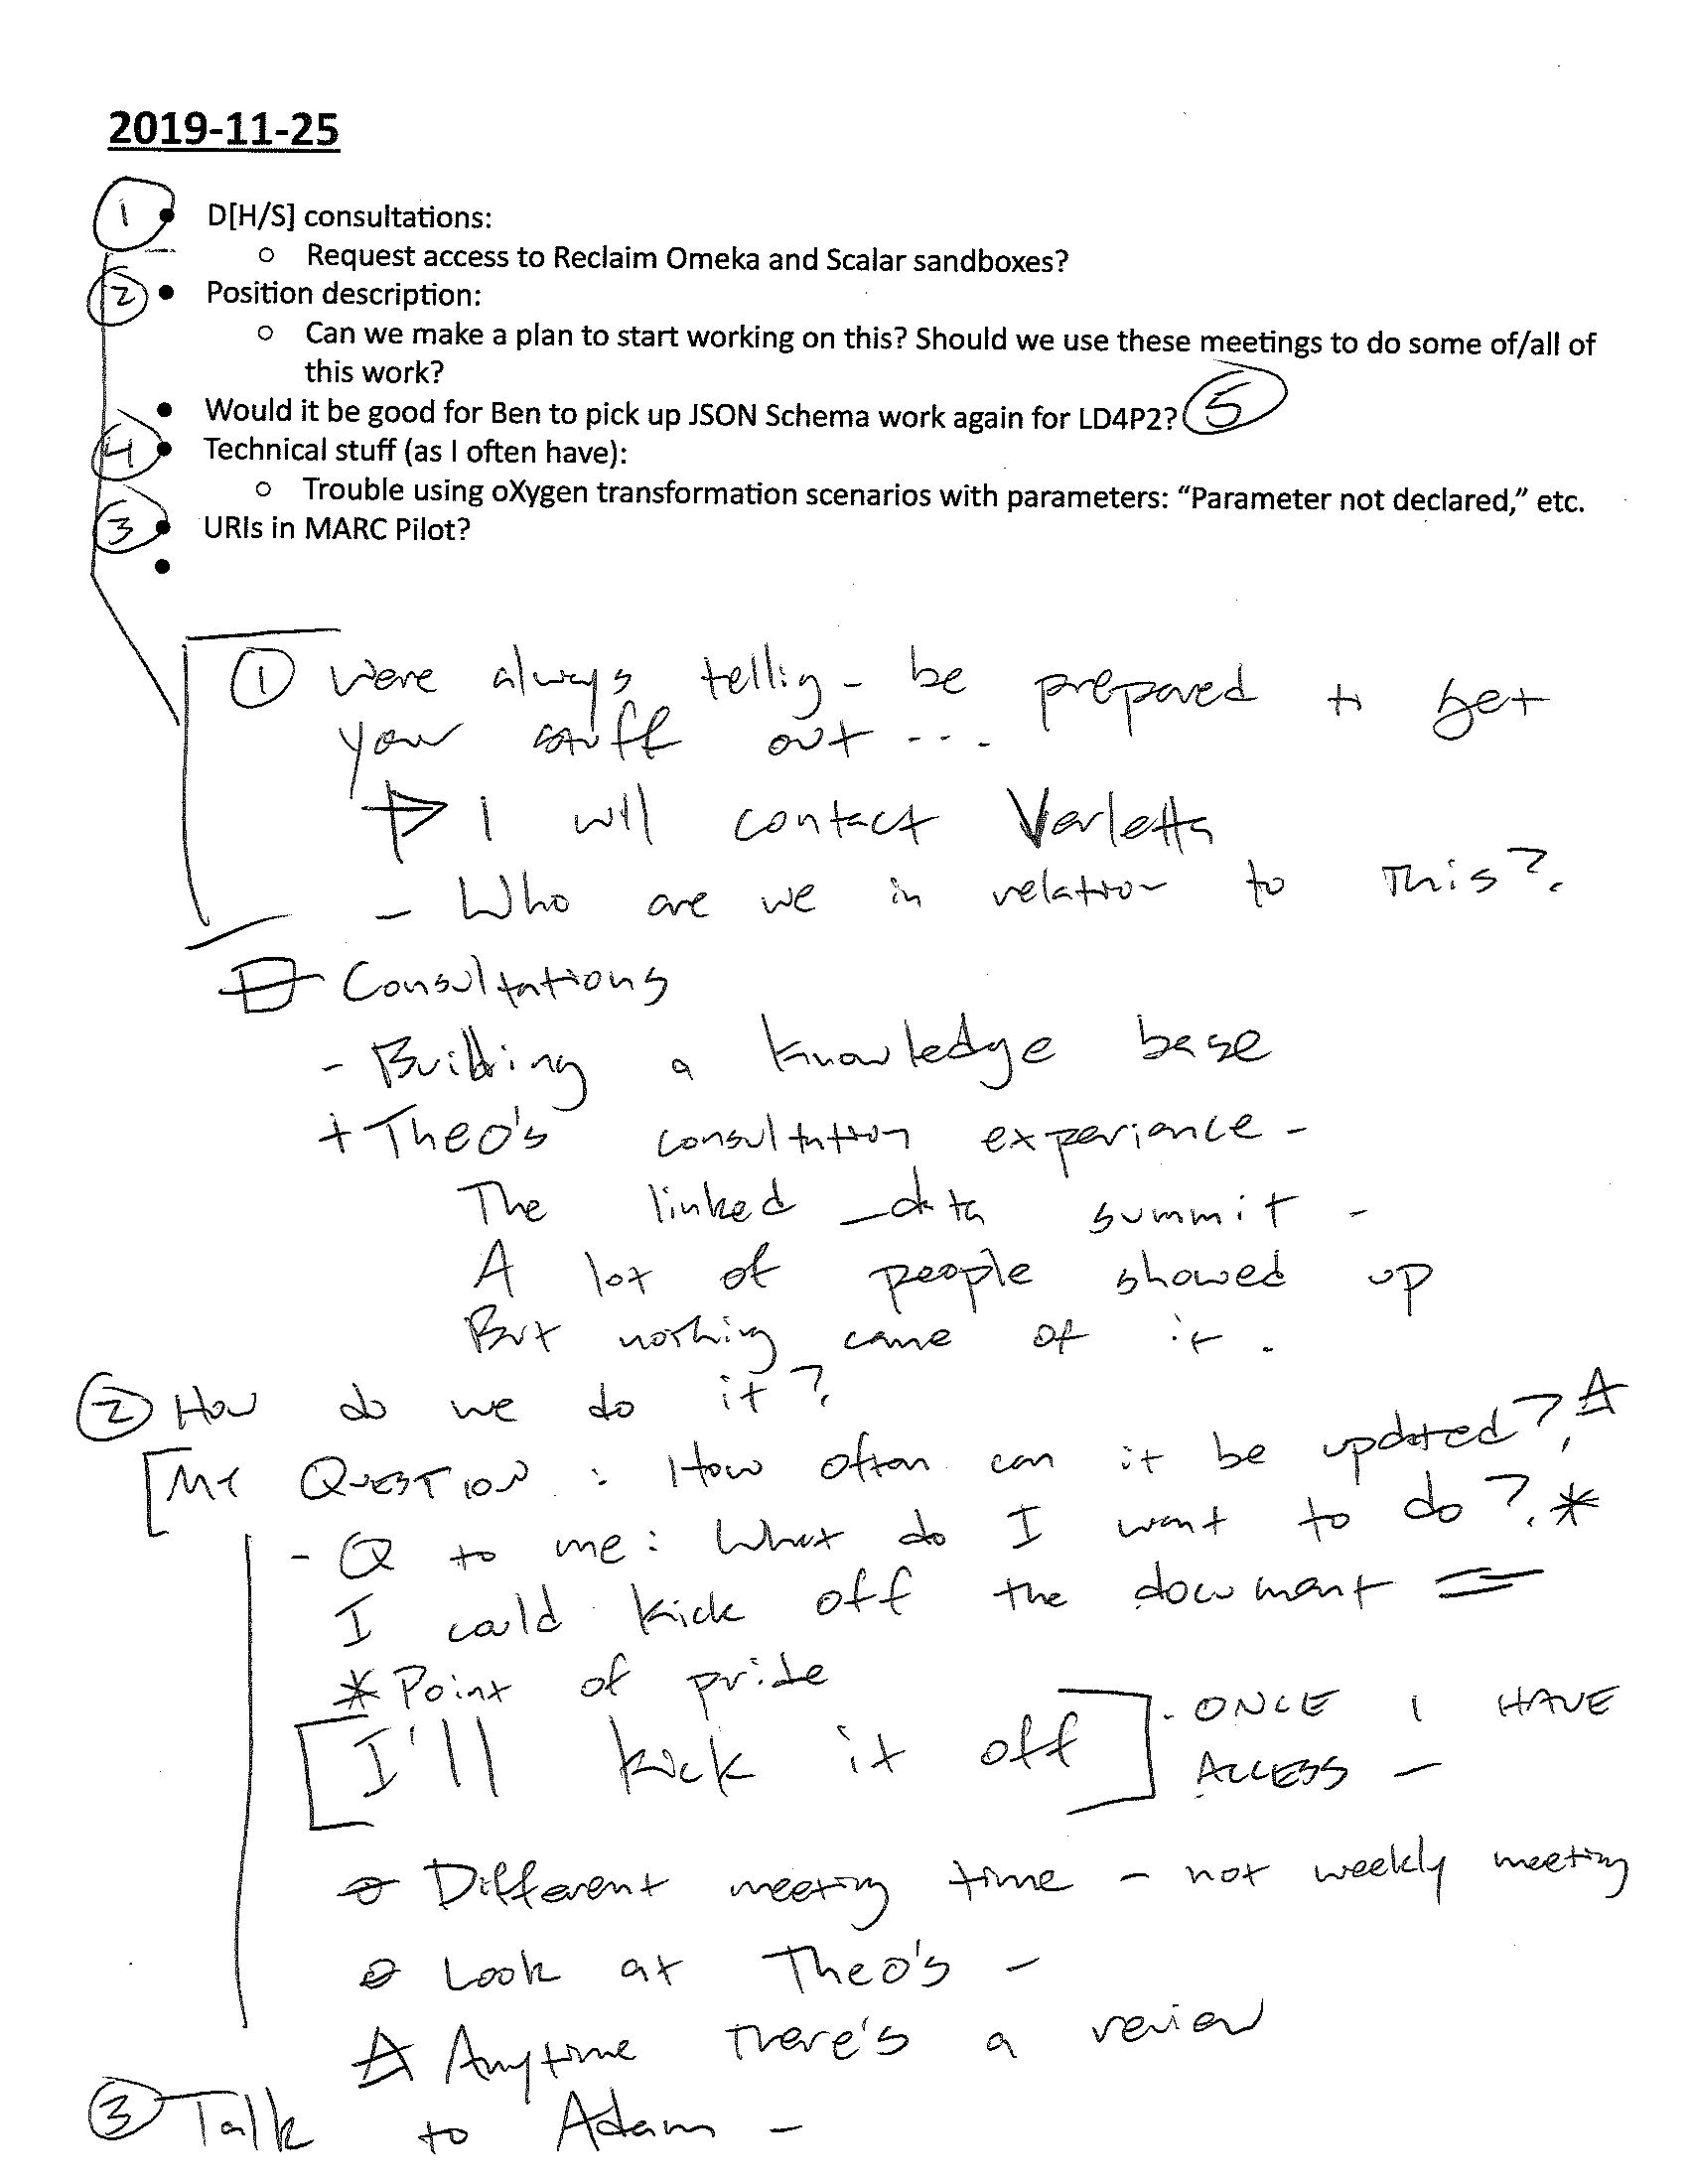 2019-11-25
1 • D[H/S] consultations:
○ Request access to Reclaim Omeka and Scalar sandboxes?
2 • Position description:
○ Can we make a plan to start working on this? Should we use these meetings to do some of/all of
this work?
• Would it be good for Ben to pick up JSON Schema work again for LD4P2? 5
4 • Technical stuff (as I often have):
○ Trouble using oXygen transformation scenarios with parameters: “Parameter not declared,” etc.
3 • URIs in MARC Pilot?
•
1 We're always tellig - be prepared to get
your stuff out ...
I will contact Verletta
- Who are we in relation to This?
Consultations
- Building a knowledge base
+ Theo's consultation experience -
The linked-data summit -
A lot of people showed up
But nothing came of it.
2 How do we do it?
[My QUESTION: How often can it be updated?
- Q to me: What do I want to do? *
I could kick off the document
* Point of pride
[I'll kick it off] - ONCE I HAVE
ACCESS -
Different meeting time - not weekly meeting
Look at Theo's -
Anytime There's a review
3 Talk to Adam -